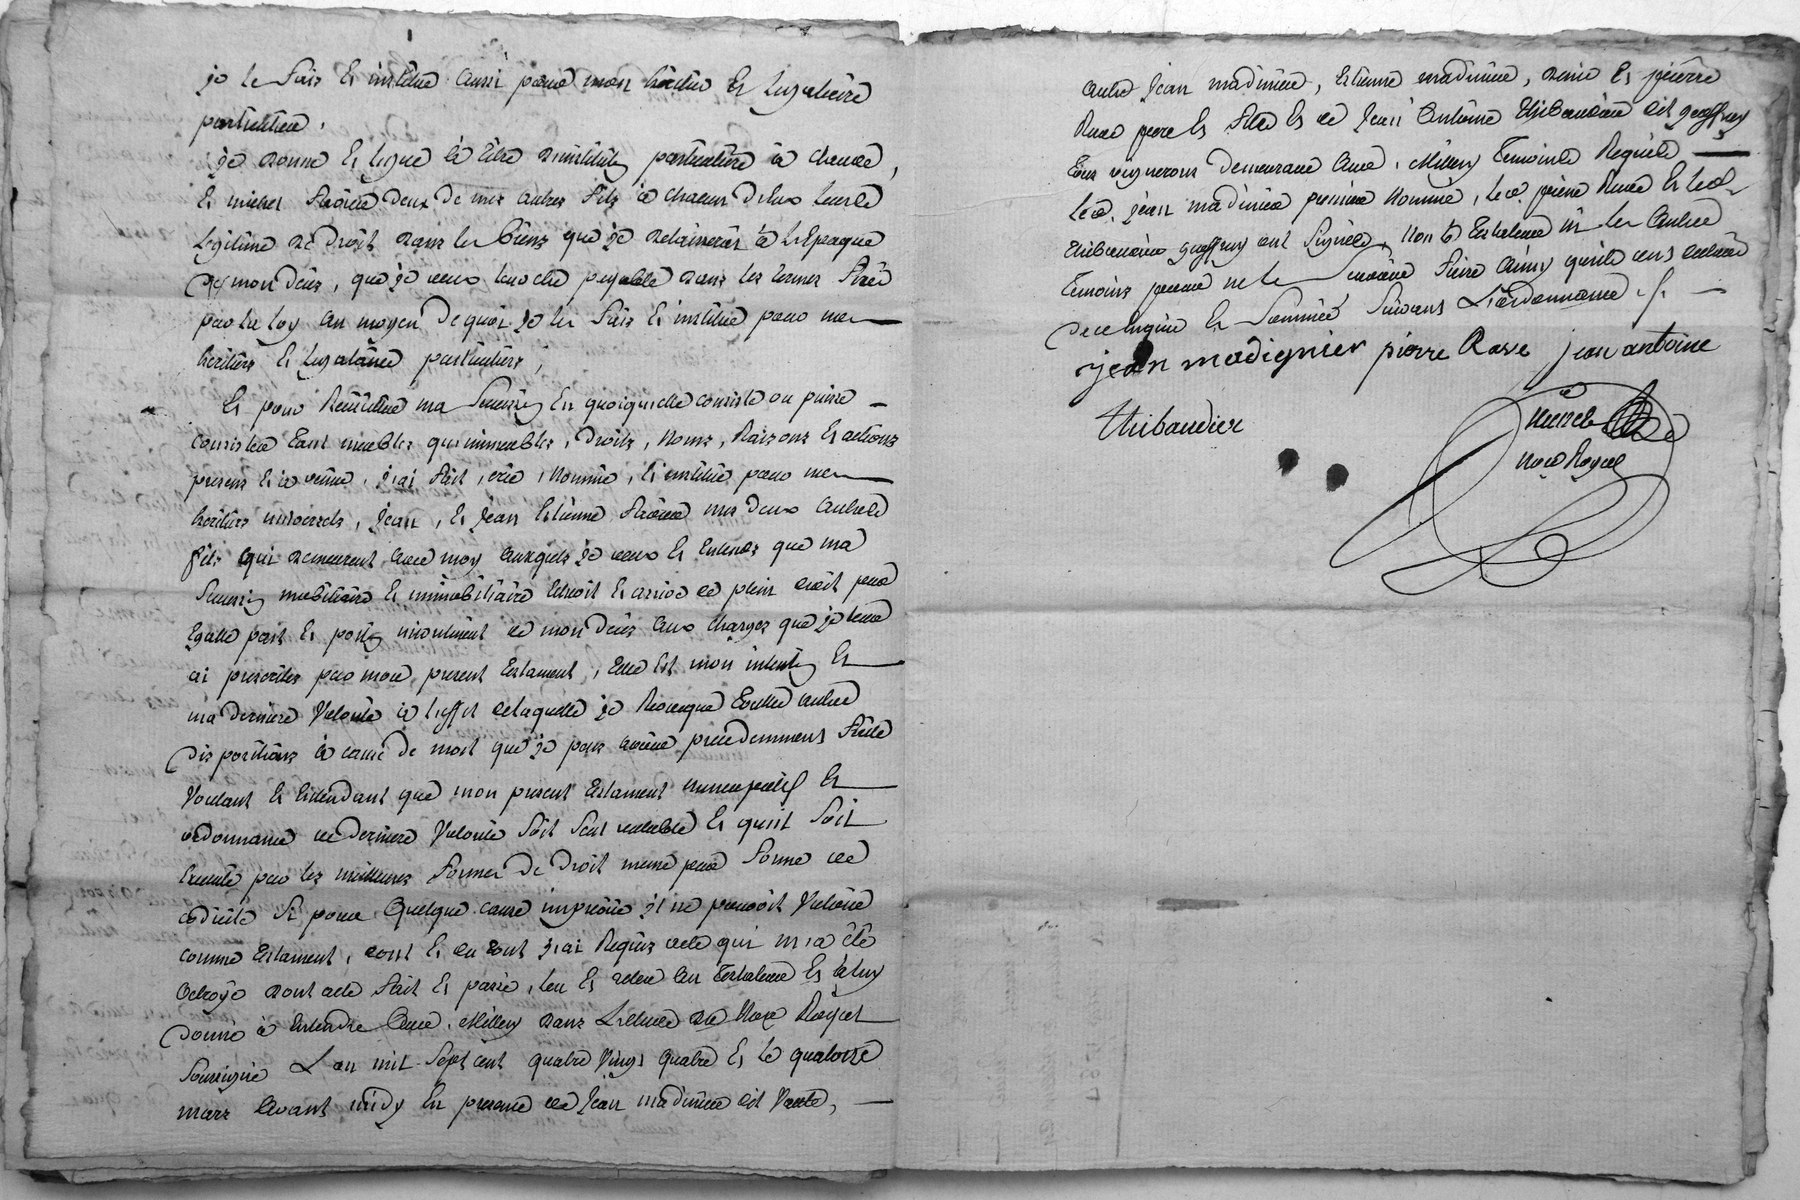 je le fais et institue aussi pour mon héritier et legataire
particulier.
je donne et legue à titre d'institution particulière à claude,
et michel frères deux de mes autres fils à chacun d'eux leurs
legitime de droit dans les biens que je delaisserai à l'epoque
de mon décès, que je veux leur être payable dans les termes fixés
par la loy au moyen de quoi je les fais et institue pour mes
heritiers et legataires particuliers,
Et pour Recueillir ma succession en quoiqu'elle consiste ou puisse
consister tant meubles qu'immeubles, droits, noms, Raisons et actions
presens et à venir, j'ai fait, créé, nommé, et institué pour mes
heritiers universels, jean, et jean Estienne mes deux autres
fils qui demeurent avec moy auxquels je veux et entends que ma
succession mobiliaire et immobiliaire échoit et arrive de plein droit par
egalle part et portion incontinent de mon décès aux charges que je leur
ai prescrites par mon present testament, telle est mon intention et
ma derniere volonté à l'effet de laquelle je Revoque toutes autres
dispositions à cause de mort que je puis avoir precedemment faites
Voulant et entendant que mon present testament nuncupatif et
ordonnance de derniere volonté soit seul valable et qu'il soit
executé par les meilleures formes de droit meme par forme de
codicile si pour quelque cause imprévue il ne pouvoit valoir
comme testament, dont et du tout j'ai Requis acte qui m'a été
octroyé dont acte fait et passé, leu et releu au testateur et à luy
donné à entendre à Millery dans l'etude du No.re Royal
soussigné L'an mil sept cent quatre vingt quatre et le quatorze
mars avant midy en presence de jean madinier dit
autre jean madinier, Estienne madinier, et pierre
Rave pere et fils et de jean antoine thibaudier dit geoffray
tous vignerons demeurant à Millery temoins Requis
led. jean madinier premier nommé, led. pierre Rave et led.
thibaudier geoffray ont signés, non le testateur ni les autres
temoins pour ne le sçavoir faire ainsi qu'ils ont declaré
de ce enquis et sommés suivant L'ordonnance
jean madignier pierre Rave jean antoine
thibaudier
No.re Royal